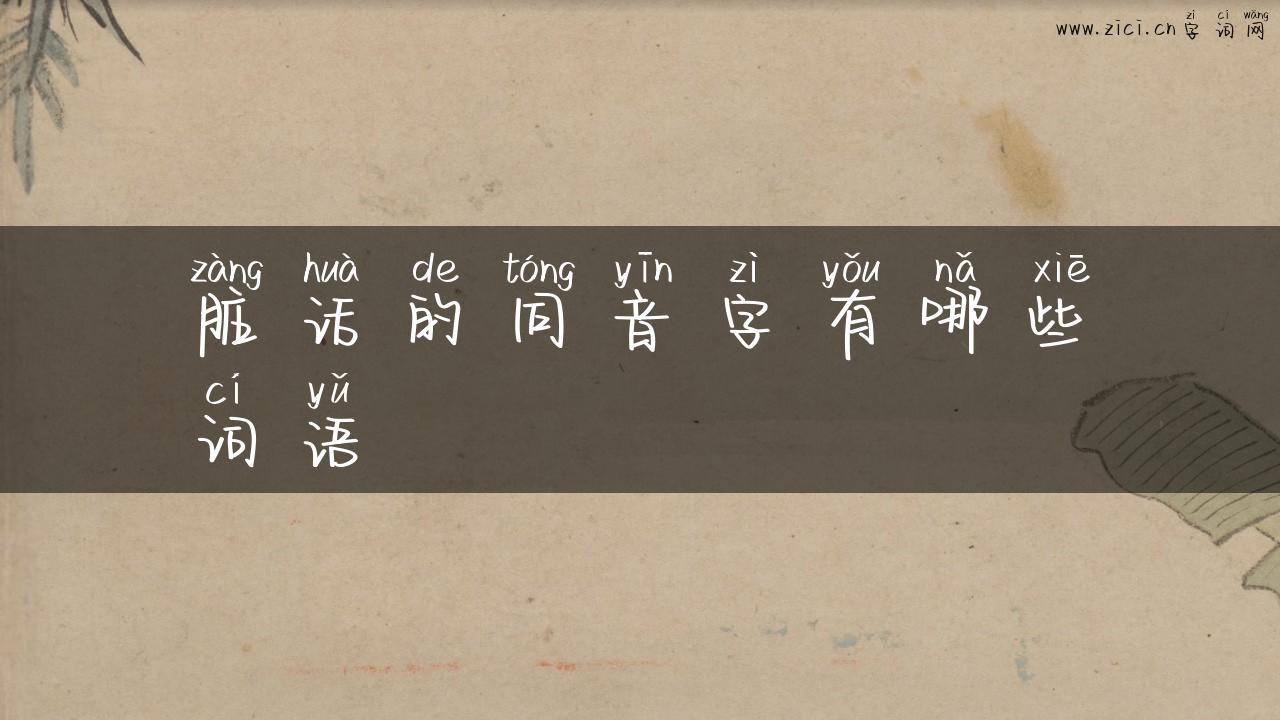 zì cí wǎng
www.zici.cn 字词网
zàng huà de tóng yīn zì yǒu nǎ xiē
脏话的同音字有哪些
cí yǔ
词语